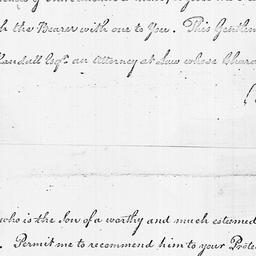 h the Bearer with one to You. This Gentlem
Randall Esqr. an Attorney at Law whose Chara
who is the Son of a worthy and much esteemed
. Permit me to recommend him to your Prote